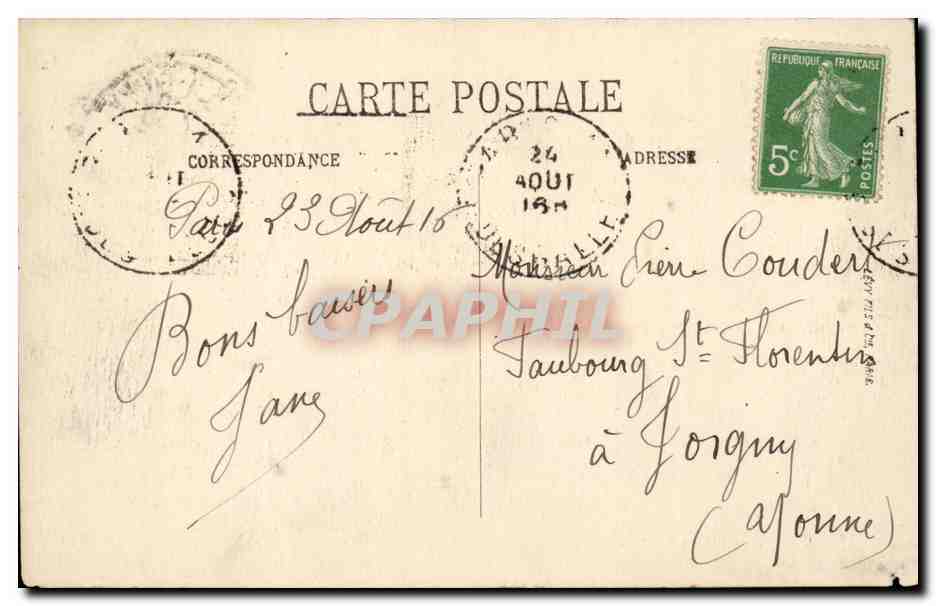 CARTE POSTALE
RÉPUBLIQUE FRANÇAISE
5c
POSTES
CORRESPONDANCE
ADRESSE
24
AOUT
16H
23 Août 16
Bons baisers
Jane
Monsieur Pierre Coudert
Faubourg St Florentin
à Joigny
(Yonne)
LÉVY FILS & CIE, PARIS.
CPAPHIL